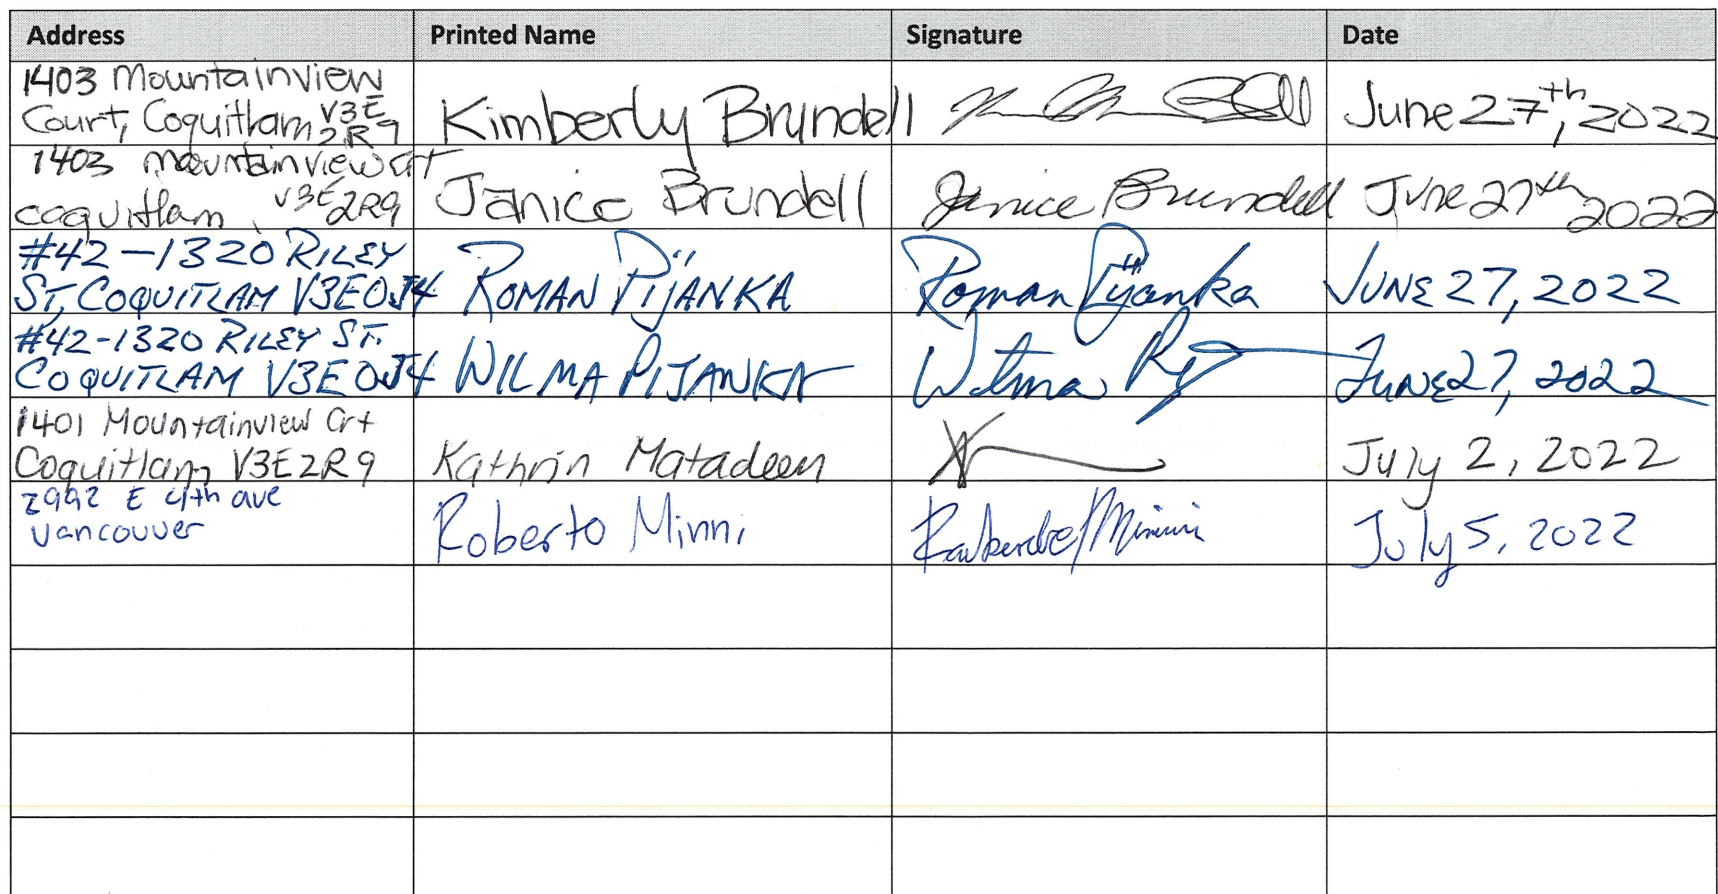 Address Printed Name Signature Date
1403 Mountainview
Court, Coquitlam V3E 2R9 Kimberly Brundell June 27th, 2022
1403 mountainview crt
coquitlam V3E 2R9 Janice Brundell Janice Brundell June 27th 2022
#42-1320 RILEY
ST, COQUITLAM V3E0J4 ROMAN PIJANKA Roman Pijanka JUNE 27, 2022
#42-1320 RILEY ST.
COQUITLAM V3E0J4 WILMA PIJANKA Wilma JUNE 27, 2022
1401 Mountainview Crt
Coquitlam V3E2R9 Kathrin Matadeen July 2, 2022
2992 E 4th ave
Vancouver Roberto Minni July 5, 2022